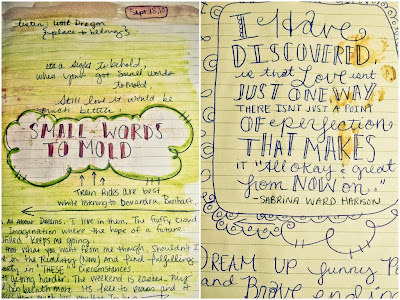 listen: Little Dragon
{place to belong}
Sept 15, 10
its a sight to behold,
when youve got small words
to mold.
Still love it would be
much better
SMALL-WORDS
TO MOLD
Train Rides are best
while listening to Devandra Banhart.
All About Dreams. I live in them. The fluffy cloud
Imagination where the hope of a future-
Filled keeps me going.
that what you want from me though. Shouldn't I
in the Reality (Now) and Find fulfilling
in "THESE" circumstances.
harder. The weekend is easier. They
with most. Its free to reason and it
I HAVE
DISCOVERED,
is that Love isnt
JUST ONE WAY.
THERE ISNT JUST A POINT
OF Perfection
THAT MAKES
it "All okay & great
from NOW on."
-SABRINA WARD HARRISON
DREAM UP funny
and Brave and